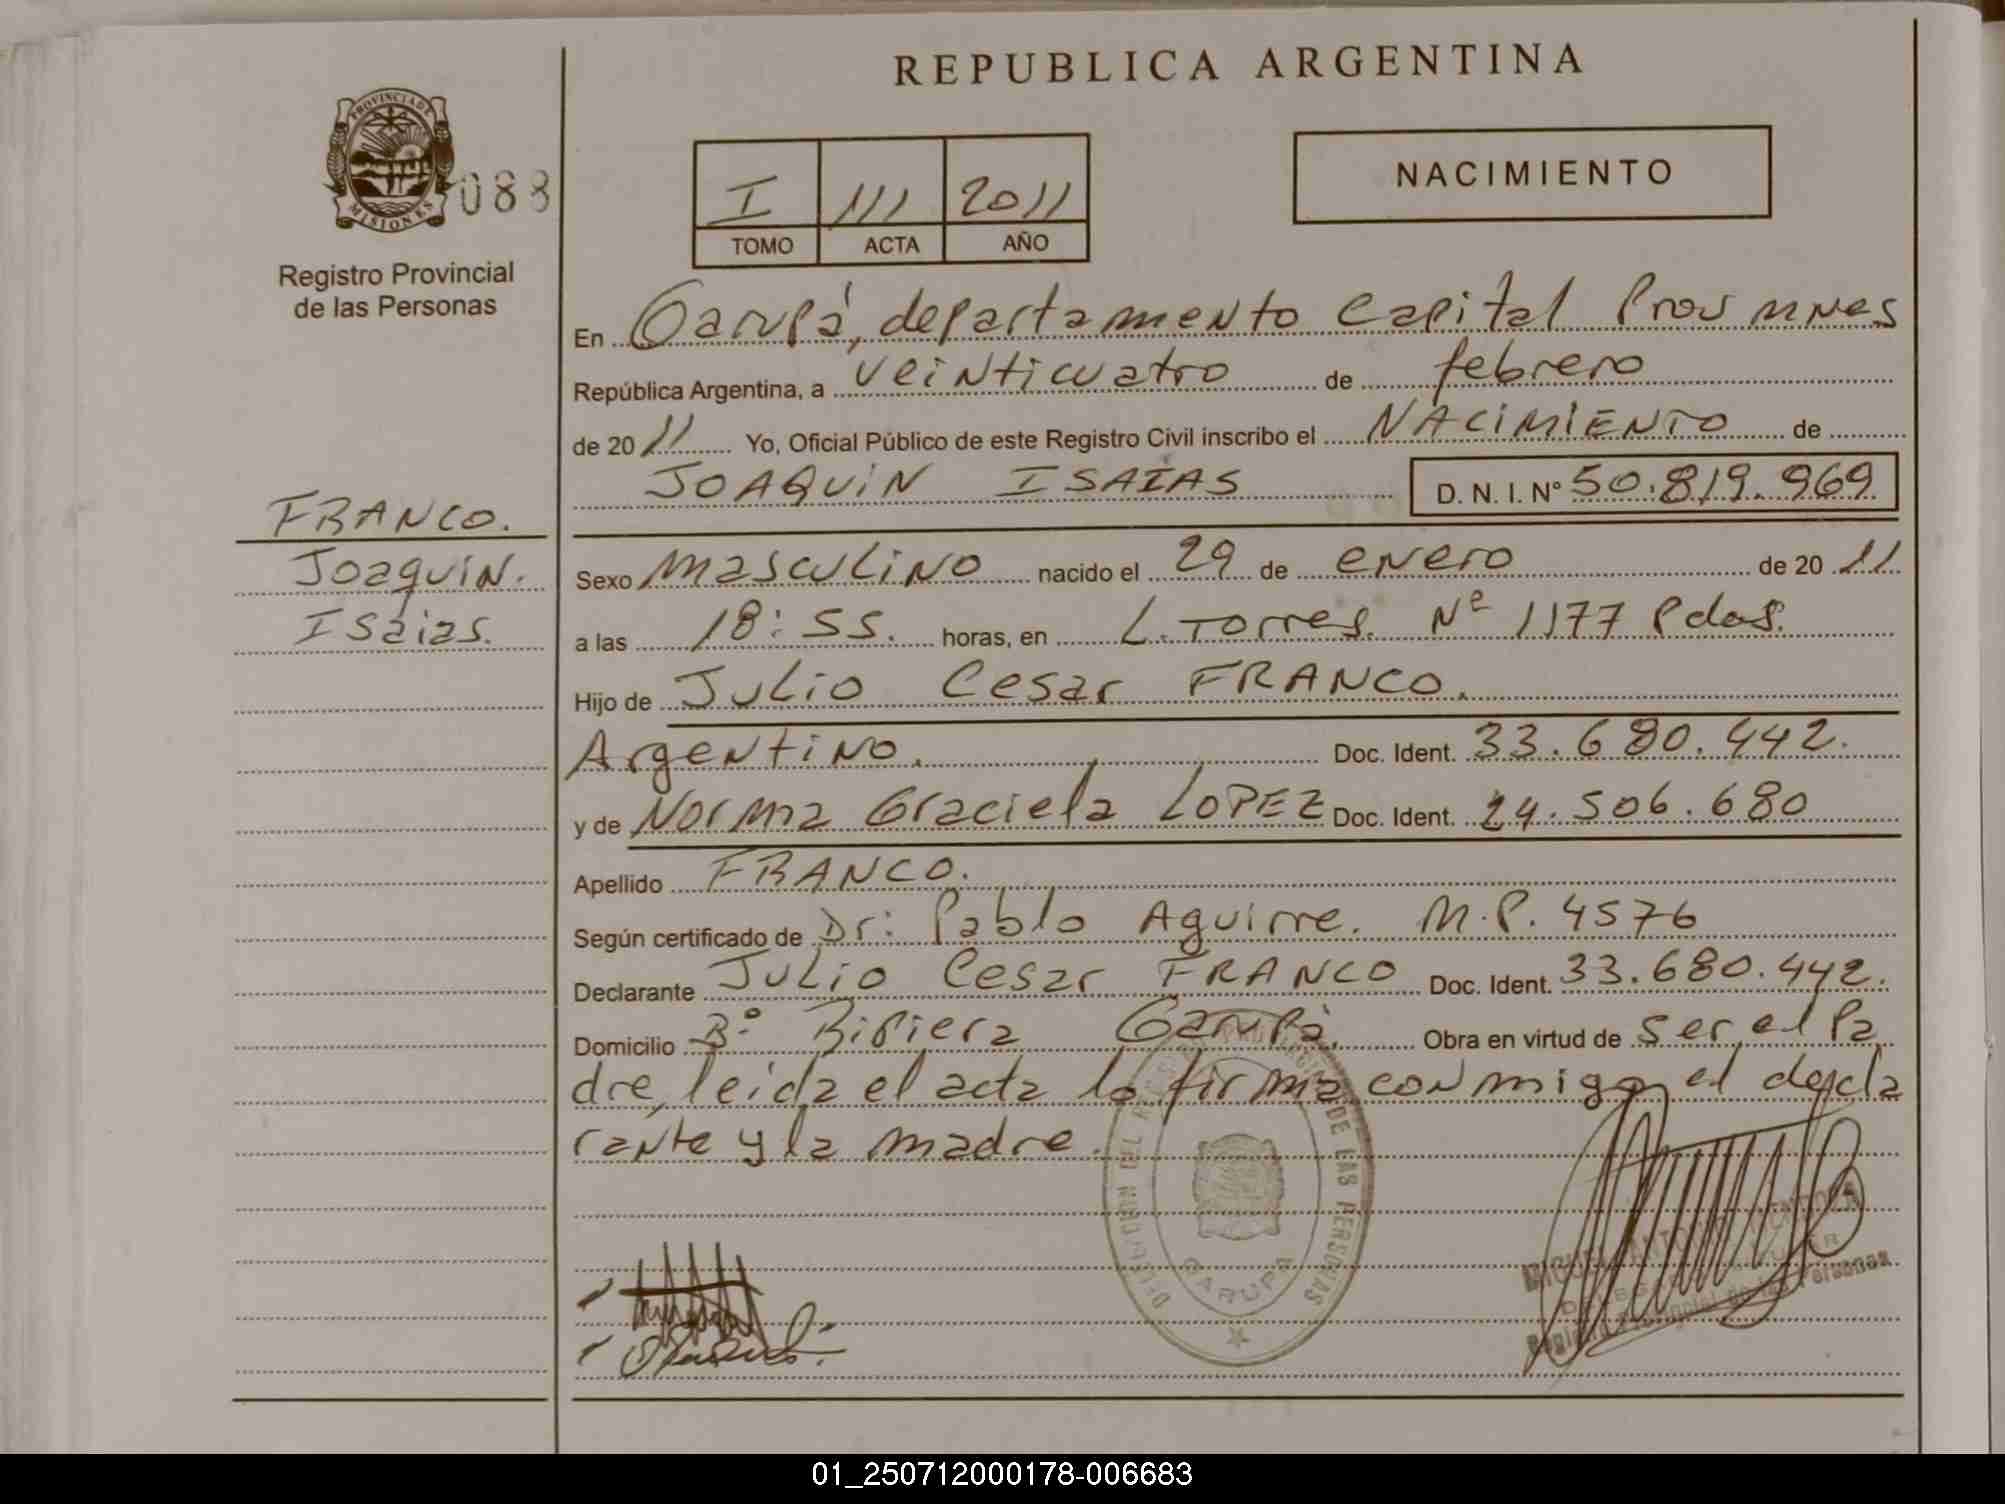 REPUBLICA ARGENTINA
PROVINCIA DE
MISIONES
088
Registro Provincial
de las Personas
I 111 2011
TOMO ACTA AÑO
NACIMIENTO
En Garupá, departamento Capital Prov MNes
República Argentina, a veinticuatro de febrero
de 2011 Yo, Oficial Público de este Registro Civil inscribo el NACIMIENTO de
JOAQUIN ISAIAS D. N. I. Nº 50.819.969
FRANCO.
Joaquin.
Isaias.
Sexo masculino nacido el 29 de enero de 2011
a las 18:55. horas, en L. Torres. Nº 1177 Pdas.
Hijo de Julio Cesar FRANCO.
Argentino. Doc. Ident. 33.680.442.
y de Norma Graciela LOPEZ Doc. Ident. 24.506.680
Apellido FRANCO.
Según certificado de Dr: Pablo Aguirre. M.P. 4576
Declarante Julio Cesar FRANCO Doc. Ident. 33.680.442.
Domicilio Bº Ripiera Garupá. Obra en virtud de ser el Pa
dre, leida el acta la firma conmigo el decla
rante y la madre.
DE LAS PERSONAS
GARUPA
MIGUEL ANTONIO MENDOZA
Registro Provincial de las Personas
01_250712000178-006683